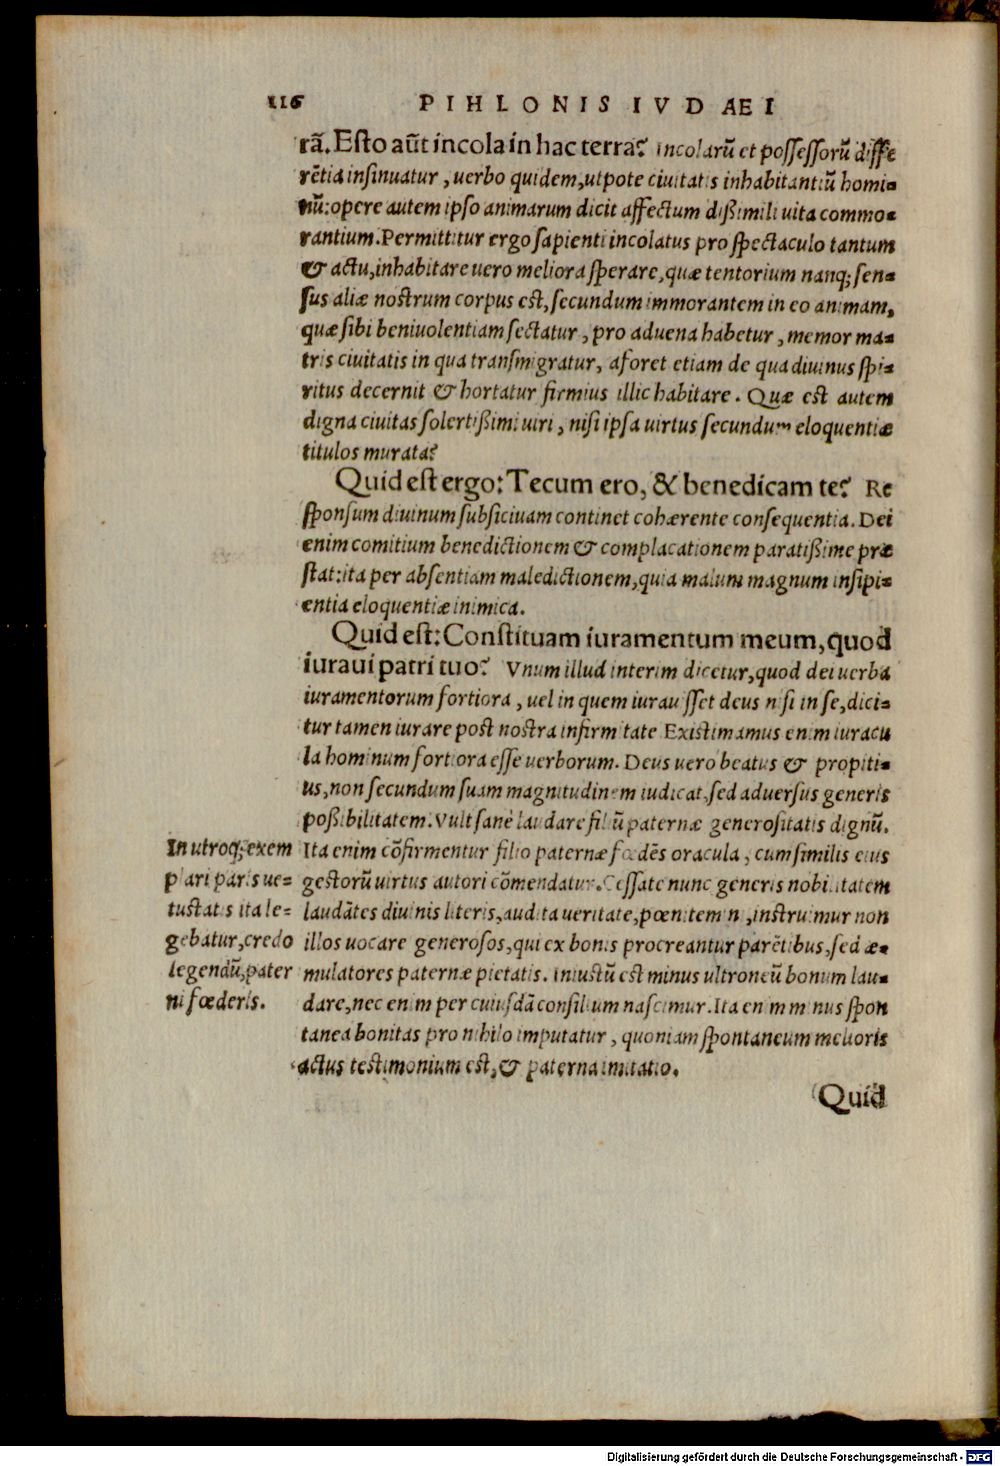 116 PIHLONIS IVDAEI
rã. Esto aũt incola in hac terra? Incolarũ et possessorũ diffe
rẽtia insinuatur, uerbo quidem, utpote ciuitatis inhabitantiũ homi-
nũ: opere autem ipso animarum dicit affectum dißimili uita commo-
rantium. Permittitur ergo sapienti incolatus pro spectaculo tantum
& actu, inhabitare uero meliora sperare, quæ tentorium nanq; sen-
sus aliæ nostrum corpus est, secundum immorantem in eo animam,
quæ sibi beniuolentiam sectatur, pro aduena habetur, memor ma-
tris ciuitatis in qua transmigratur, aforet etiam de qua diuinus spi-
ritus decernit & hortatur firmius illic habitare. Quæ est autem
digna ciuitas solertißimi uiri, nisi ipsa uirtus secundum eloquentiæ
titulos murata?
Quid est ergo: Tecum ero, & benedicam te? Re
sponsum diuinum subsiciuam continet cohærente consequentia. Dei
enim comitium benedictionem & complacationem paratißime præ
stat: ita per absentiam maledictionem, quia malum magnum insipi-
entia eloquentiæ inimica.
Quid est: Constituam iuramentum meum, quod
iuraui patri tuo? Vnum illud interim dicetur, quod dei uerba
iuramentorum fortiora, uel in quem iurausset deus nisi in se, dici-
tur tamen iurare post nostra infirmitate Existimamus enim iuracu
la hominum fortiora esse uerborum. Deus uero beatus & propiti-
us, non secundum suam magnitudinem iudicat, sed aduersus generis
poßibilitatem. Vult sanè laudare filiũ paternæ generositatis dignũ.
Ita enim cõfirmentur filio paternæ fœdẽs oracula, cum similis eius
gestorũ uirtus autori cõmendatur. Cessate nunc generis nobilitatem
laudãtes diuinis literis, audita ueritate, pœnitemini, instruimur non
illos uocare generosos, qui ex bonis procreantur parẽtibus, sed æ-
mulatores paternæ pietatis. Iniustũ est minus ultroneũ bonum lau-
dare, nec enim per cuiusdã consilium nascimur. Ita enim minus spon
tanea bonitas pro nihilo imputatur, quoniam spontaneum melioris
actus testimonium est, & paterna imitatio.
Quid
In utroq; exem
plari paris ue-
tustatis ita le-
gebatur, credo
legendũ, pater
ni fœderis.
Digitalisierung gefördert durch die Deutsche Forschungsgemeinschaft - DFG